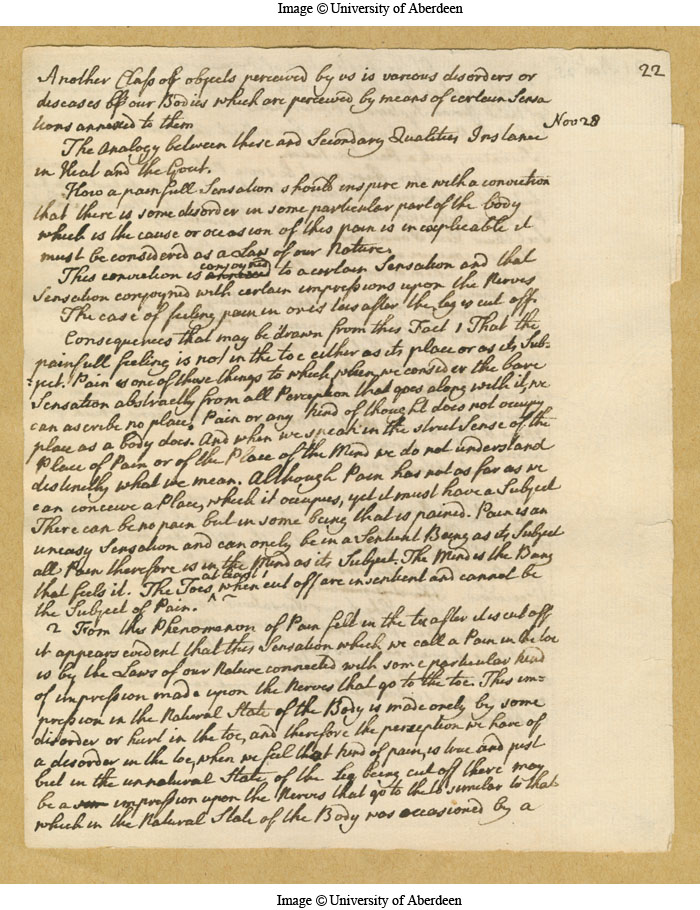 Image © University of Aberdeen
22
Another Class of objects perceived by us is various disorders or
diseases of our Bodies which are perceived by means of certain Sensa
tions annexed to them
Nov 28
The Analogy between these and Secondary Qualities Instance
in Heat and the Gout.
How a painfull Sensation should inspire me with a conviction
that there is some disorder in some particular part of the body
which is the cause or occasion of this pain is inexplicable it
must be considered as a Law of our Nature.
This conviction is conjoyned to a certain Sensation and that
Sensation conjoyned with certain impressions upon the Nerves
The case of feeling pain in ones toes after the leg is cut off.
Consequences that may be drawn from this Fact 1 That the
painfull feeling is not in the toe either as its place or as its Sub-
-ject. Pain is one of those things to which, when we consider the bare
Sensation abstractly from all Perception that goes along with it, we
can ascribe no place. Pain or any kind of thought does not occupy
place as a body does. And when we speak in the strict Sense of the
Place of Pain or of the Place of the Mind we do not understand
distinctly what we mean. Although Pain has not as far as we
can conceive a Place, which it occupies, yet it must have a Subject
There can be no pain but in some being that is pained. Pain is an
uneasy Sensation and can onely be in a Sentient Being as its Subject
all Pain therefore is in the Mind as its Subject. The Mind is the Being
that feels it. The Toes at least when cut off are insentient and cannot be
the Subject of Pain.
2 From this Phenomenon of Pain felt in the toe after it is cut off
it appears evident that this Sensation which we call a Pain in the toe
is by the Laws of our Nature connected with some particular kind
of impression made upon the Nerves that go to the toe. This im-
pression in the Natural State of the Body is made onely by some
disorder or hurt in the toe, and therefore the perception we have of
a disorder in the toe, when we feel that kind of pain, is true and just
but in the unnatural State, of the Leg being cut off there may
be a impression upon the Nerves that go to the similar to that
which in the Natural State of the Body was occasioned by a
Image © University of Aberdeen